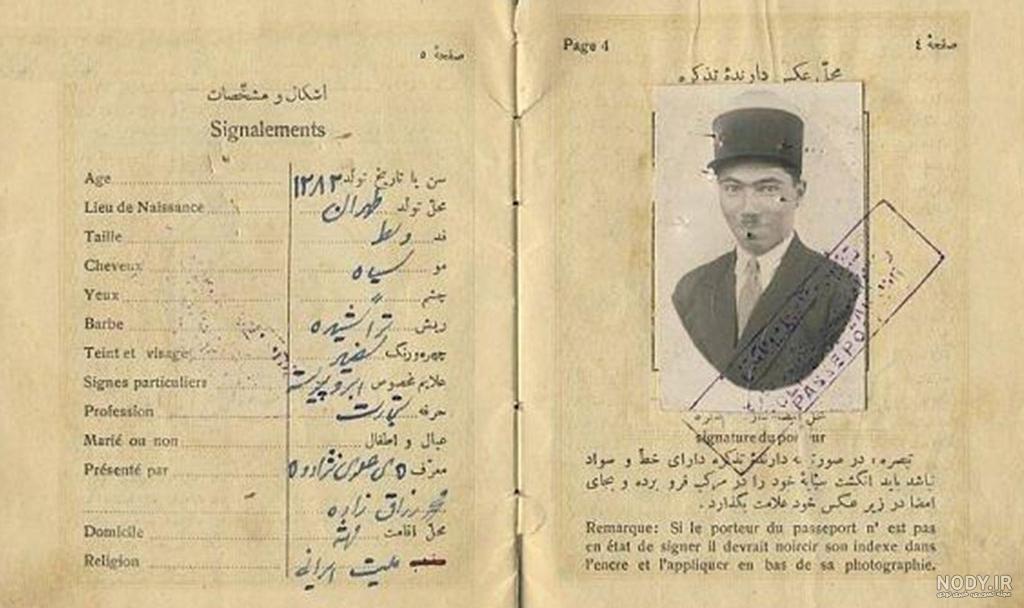 صفحهٔ ٥
اشکال و مشخّصات
Signalements
Age سن یا تاریخ تولّد ۱۲۸۲
Lieu de Naissance محلّ تولد طهران
Taille قد وسط
Cheveux مو سیاه
Yeux چشم
Barbe ریش تراشیده
Teint et visage چهره ورنگ
Signes particuliers علایم مخصوص ابرو پیوسته
Profession حرفه تجارت
Marié ou non عیال و اطفال
Présenté par معرّف
رزاق زاده
Domicile محلّ اقامت
Religion ملیت ایرانی
Page 4
صفحهٔ ٤
محلّ عکس دارندهٔ تذکره
PASSEPO
signature du por ur
تبصره : در صورتیکه دارندهٔ تذکره دارای خطّ و سواد
نباشد باید انگشت سبّابهٔ خود را در مرکب فرو برده و بجای
امضا در زیر عکس خود علامت بگذارد .
Remarque: Si le porteur du passeport n' est pas
en état de signer il devrait noircir son indexe dans
l'encre et l'appliquer en bas de sa photographie.
NODY.IR